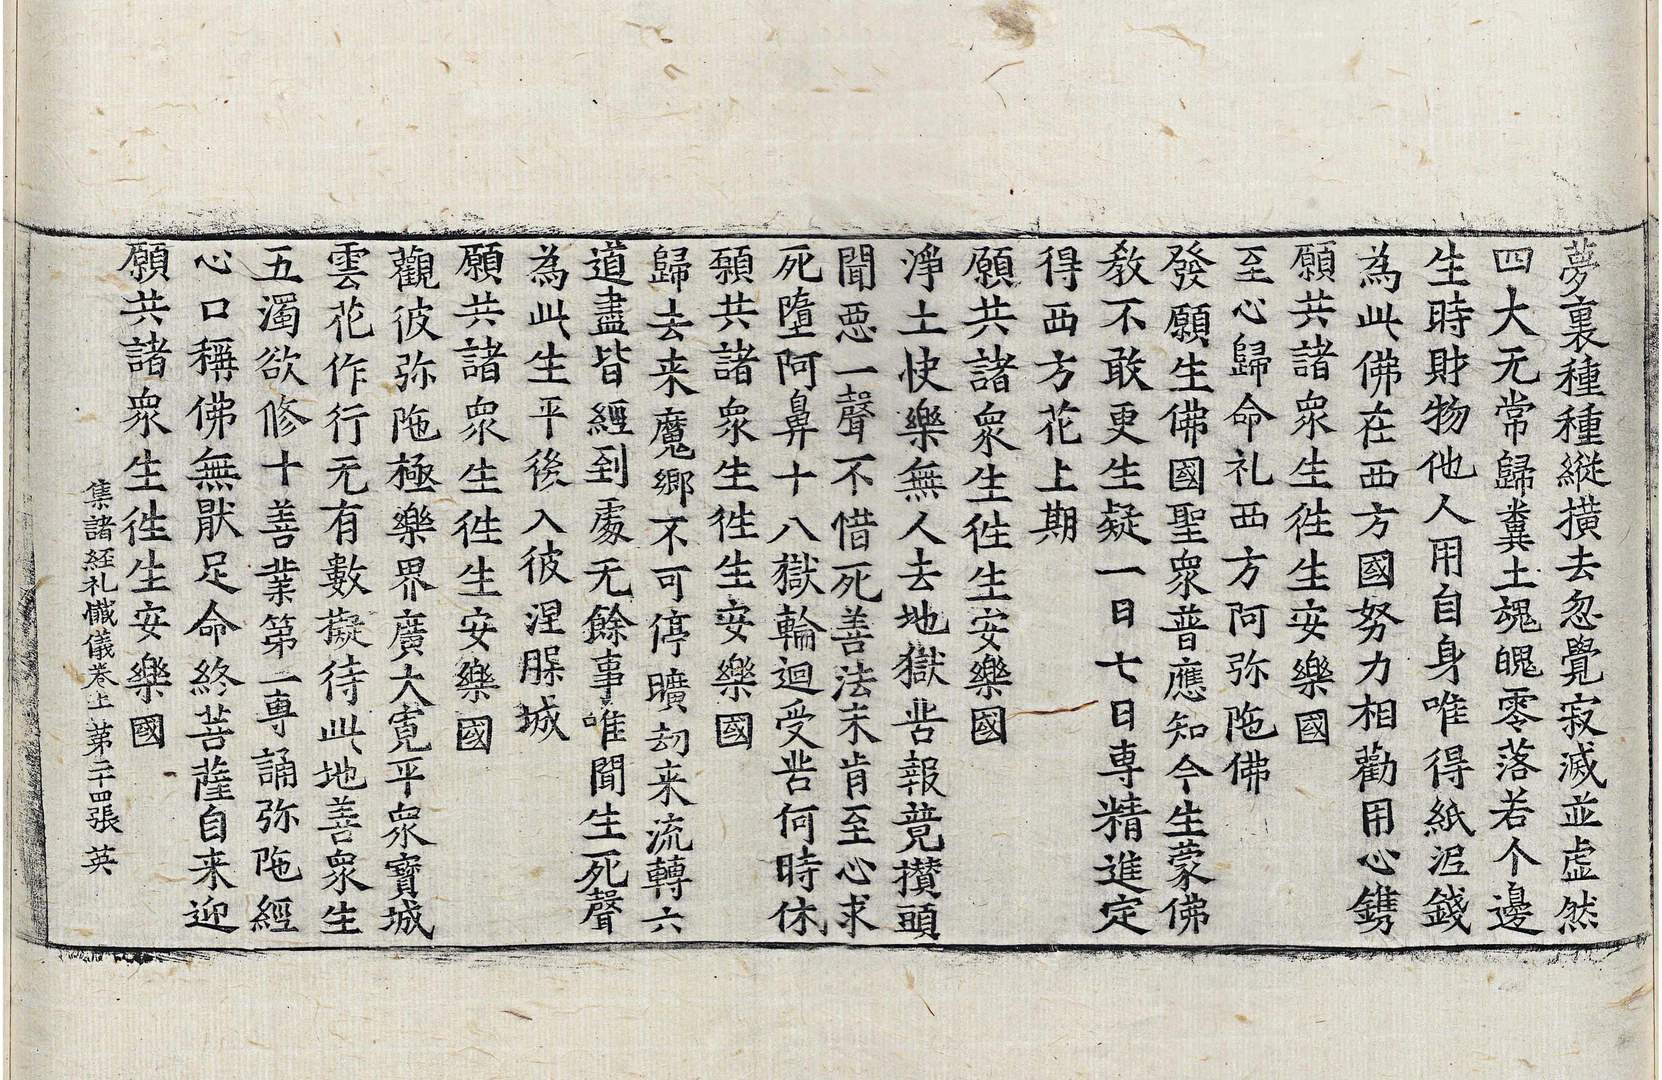 夢裏種種縱撗去忽覺寂滅並虛然
四大无常歸糞土魂魄零落若个邊
生時財物他人用自身唯得紙泥錢
為此佛在西方國努力相勸用心鐫
願共諸衆生徃生安樂國
至心歸命礼西方阿弥陁佛
發願生佛國聖衆普應知今生蒙佛
教不敢更生疑一日七日専精進定
得西方花上期
願共諸衆生徃生安樂國
淨土快樂無人去地獄苦報競攢頭
聞惡一聲不惜死善法未肯至心求
死墮阿鼻十八獄輪迴受苦何時休
願共諸衆生徃生安樂國
歸去来魔鄉不可停曠刧来流轉六
道盡皆經到處无餘事唯聞生死聲
為此生平後入彼涅㬹城
願共諸衆生徃生安樂國
觀彼弥陁極樂界廣大寬平衆寶城
雲花作行无有數擬待此地善衆生
五濁欲修十善業第一専誦弥陁經
心口稱佛無猒足命終菩薩自来迎
願共諸衆生徃生安樂國
集諸経礼懺儀卷上 苐二十四張 英